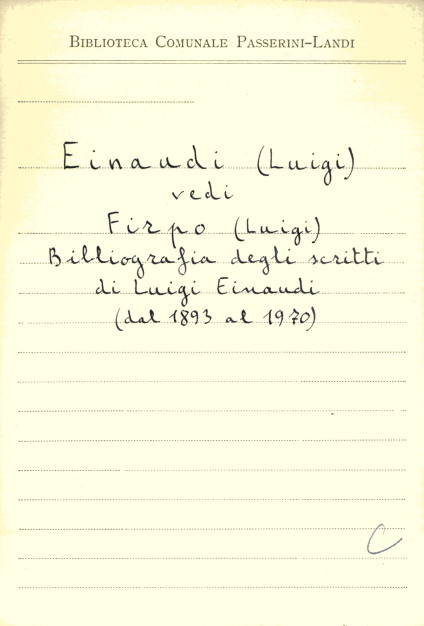 Biblioteca Comunale Passerini-Landi
Einaudi (Luigi)
vedi
Firpo (Luigi)
Bibliografia degli scritti
di Luigi Einaudi
(dal 1893 al 1970)
C